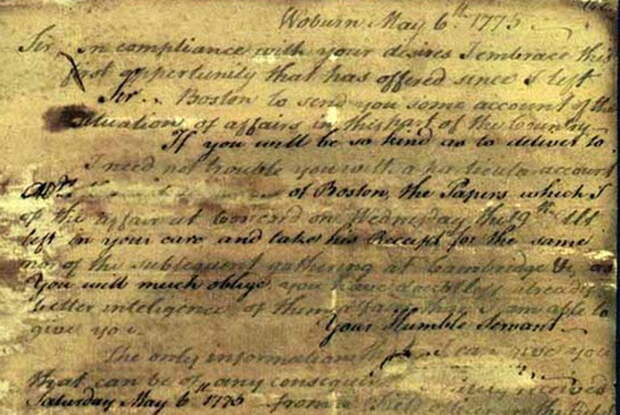 Woburn May 6th 1775
Sir, In compliance with your desires I embrace this
first opportunity that has offered since I left
Sir.. Boston to send you some account of the
situation of affairs in this part of the Country
If you will be so kind as to deliver to
I need not trouble you with a particular account
of Boston, the Papers which I
of the affair at Concord on Wednesday the 19th
left in your care and take his Receipt for the same
of the subsequent gathering at Cambridge &c, as
You will much oblige you have doubtless already
better inteligence of than I am able to
give you. Your Humble Servant
The only information that I can give you
that can be of any consequence received
Saturday May 6th 1775 from